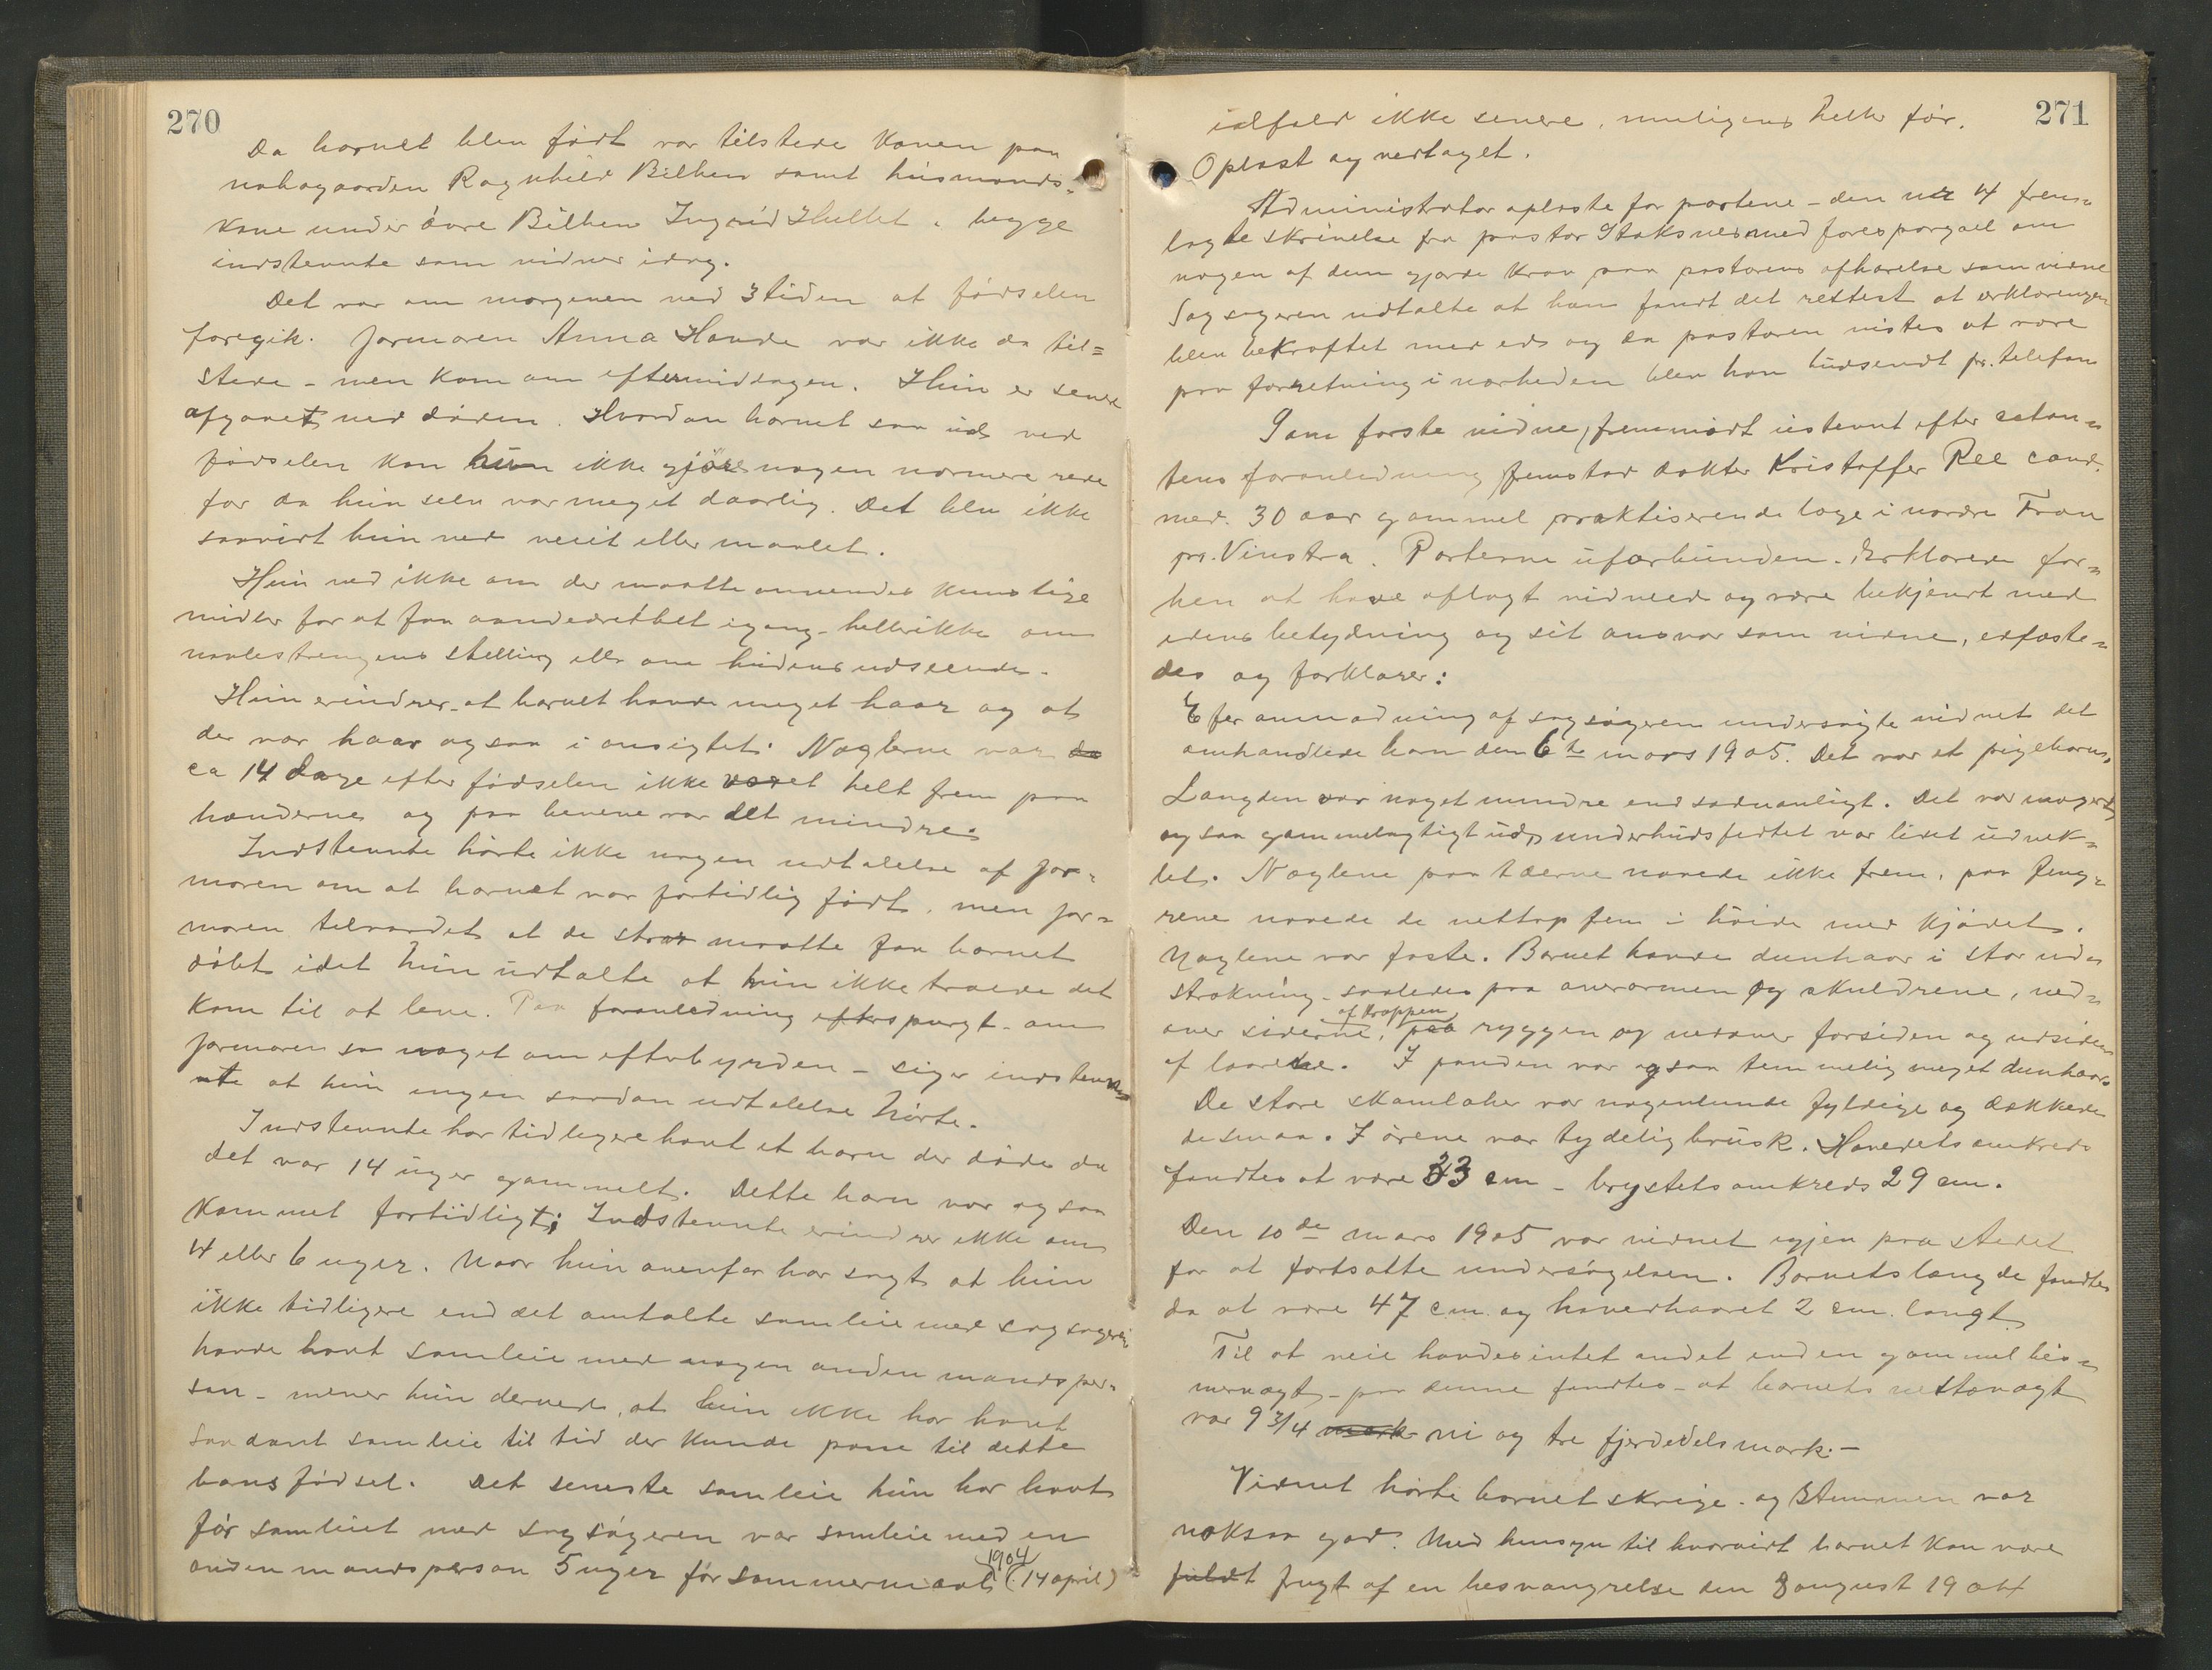 270
Da barnet blev født var tilstede konen paa
nabogaarden Ragnhild Bilben samt husmands-
kone under övre Bilben Ingrid Hullet, begge
indstevnte som vidner idag.
Det var om morgenen ved 3 tiden at fødselen
foregik. Jormoren Anna Havde var ikke da til=
stede - men kom om eftermiddagen. Hun er senere
afgaaet ved døden. Hvordan barnet saa ud ved
fødselen kan hun ikke gjöre nogen nærmere rede
for da hun selv var meget daarlig. Det blev ikke
saavidt hun ved veiet eller maalet.
Hun ved ikke om der maatte anvendes kunstige
midler for at faa aandedrættet igang - heller ikke om
navlestrengens stelling eller om hudens udseende.
Hun erindrer at barnet havde meget haar og at
der var haar ogsaa i ansigtet. Neglerne var da
ca 14 dage efter fødselen ikke voxet helt frem paa
hænderne og paa benene var det mindre.
Indstevnte hørte ikke nogen udtalelse af jor-
moren om at barnet var fortidlig født, men jor=
moren tilraadet at de strax maatte faa barnet
döbt idet hun udtalte at hun ikke troede det
kom til at leve. Paa foranledning efterspurgt - om
jormoren sa noget om efterbyrden - siger indstevn=
nte at hun ingen saadan udtalelse hörte.
Indstevnte har tidligere havt et barn der døde da
det var 14 uger gammelt. Dette barn var ogsaa
kommet fortidligt; Indstevnte erindrer ikke om
4 eller 6 uger. Naar hun ovenfor har sagt at hun
ikke tidligere end det omtalte samleie med sagsøgeren
havde havt samleie med nogen anden mandsper-
son - mener hun derved, at hun ikke har havt
saadant samleie til tid der kunde passe til dette
barns fødsel. Det seneste samleie hun har havt
før samleiet med sagsøgeren var samleie med en
anden mandsperson 5 uger før sommermaal (14 april)
1904
271
ialfald ikke senere, muligens heller før.
Oplæst og vedtaget.
Administrator oplæste for partene - den nr 4 frem=
lagte skrivelse fra pastor Stoksnes med forespørgsel om
nogen af dem gjorde krav paa pastorens afhørelse som vidne
Sagsøgeren udtalte at han fandt det rettest at erklæringen
blev bekræftet med ed og da pastoren vistes at være
paa forretning i nærheden blev han budsendt pr. telefon
Som første vidne, fremmødt ustevnt efter citan=
tens foranledning fremstod doktor Kristoffer Ree cand.
med. 30 aar gammel praktiserende læge i nordre Fron
pr. Vinstra. Parterne uforbunden. Erklærede for=
hen at have aflagt vidneed og være bekjendt med
edens betydning og sit ansvar som vidne, edfæste=
des og forklarer:
Efer anmodning af sagsögeren undersøgte vidnet det
omhandlede barn den 6te mars 1905. Det var et pigebarn.
Længden var noget mindre end sædvanligt. Det var magert
og saa gammelagtigt ud, underhudsfedtet var lidet udvik=
let. Neglene paa tæerne naaede ikke frem, paa fing=
rene naaede de nettop frem i høide med kjødet.
Neglene var faste. Barnet havde dunhaar i stor ud=
strækning - saaledes paa overarmen og skuldrene, ned=
over siderne af kroppen, paa ryggen og nedover forsiden og udsiden
af laarene. I panden var ogsaa temmelig meget dunhaar.
De store skamlæber var nogenlunde fyldige og dækkede
de smaa. I ørene var tydelig brusk. Hovedets omkreds
fandtes at være 33 cm - brystets omkreds 29 cm.
Den 10de mars 1905 var vidnet igjen paa stedet
for at fortsætte undersögelsen. Barnets længde fandtes
da at være 47 cm. og hovedhaaret 2 cm. langt
Til at veie havdes intet andet end en gammel bis=
mervægt - paa denne fandtes - at barnets nettovægt
var 9 3/4 mark ni og tre fjerdedels mark. -
Vidnet hørte barnet skrige - og stemmen var
noksaa god. Med hensyn til hvorvidt barnet kan være
fuldt frugt af en besvangrelse den 8 august 1904